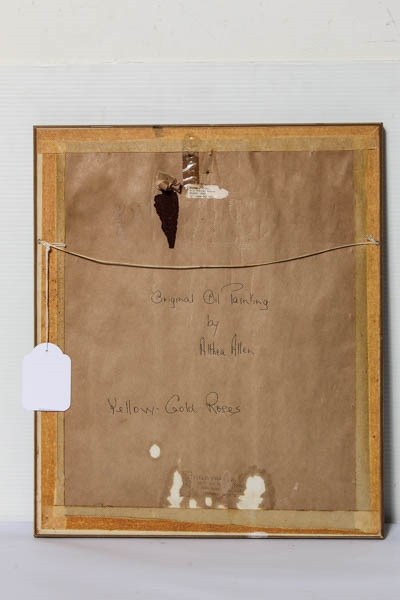 Original Oil Painting
by
Althea Allen
Yellow-Gold Roses